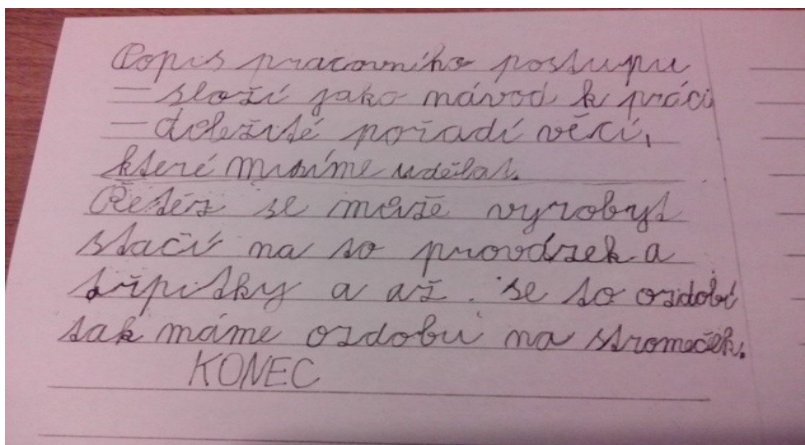 Popis pracovního postupu
– složí jako návod k práci
– doležité pořadí věcí,
které musíme udělat.
Řetěz se může vyrobyt
stačí na to provázek a
třpitky a až se to ozdobí
tak máme ozdobu na stromeček.
KONEC